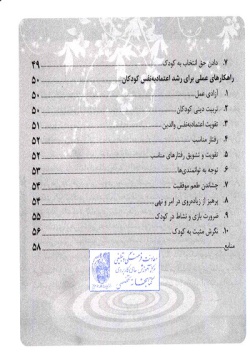 ۷. دادن حق انتخاب به کودک ۴۹
راهکارهای عملی برای رشد اعتمادبه‌نفس کودکان ۵۰
۱. آزادی عمل ۵۰
۲. تربیت دینی کودکان ۵۰
۳. تقویت اعتمادبه‌نفس والدین ۵۱
۴. رفتار مناسب ۵۲
۵. تقویت و تشویق رفتارهای مناسب ۵۲
۶. توجه به توانمندی‌ها ۵۳
۷. چشاندن طعم موفقیت ۵۴
۸. پرهیز از زیاده‌روی در امر و نهی ۵۴
۹. ضرورت بازی و نشاط در کودک ۵۵
۱۰. نگرش مثبت به کودک ۵۶
منابع ۵۸